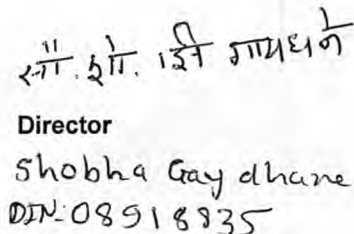 सौ. शो. डी गायधने
Director
Shobha Gaydhane
DIN:08918835